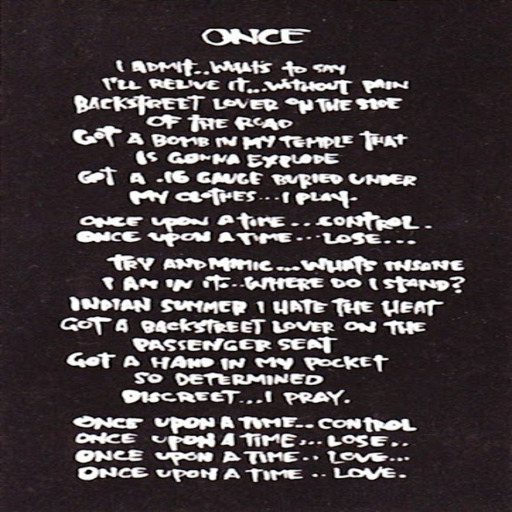 ONCE
I ADMIT..WHAT'S TO SAY
I'LL RELIVE IT...WITHOUT PAIN
BACKSTREET LOVER ON THE SIDE
OF THE ROAD
GOT A BOMB IN MY TEMPLE THAT
IS GONNA EXPLODE
GOT A .16 GAUGE BURIED UNDER
MY CLOTHES...I PLAY.
ONCE UPON A TIME...CONTROL.
ONCE UPON A TIME...LOSE...
TRY AND MIMIC...WHATS INSANE
I AM IN IT..WHERE DO I STAND?
INDIAN SUMMER I HATE THE HEAT
GOT A BACKSTREET LOVER ON THE
PASSENGER SEAT
GOT A HAND IN MY POCKET
SO DETERMINED
DISCREET...I PRAY.
ONCE UPON A TIME..CONTROL
ONCE UPON A TIME...LOSE..
ONCE UPON A TIME..LOVE...
ONCE UPON A TIME..LOVE.